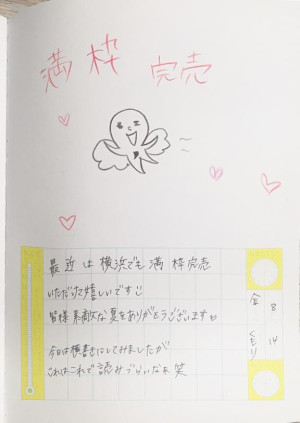 満枠 完売
最近は横浜でも満枠完売
いただけて嬉しいです
皆様素敵な夏をありがとうございます
今日は横書きにしてみましたが
これはこれで読みづらいなぁ 笑
8
金
14
くもり